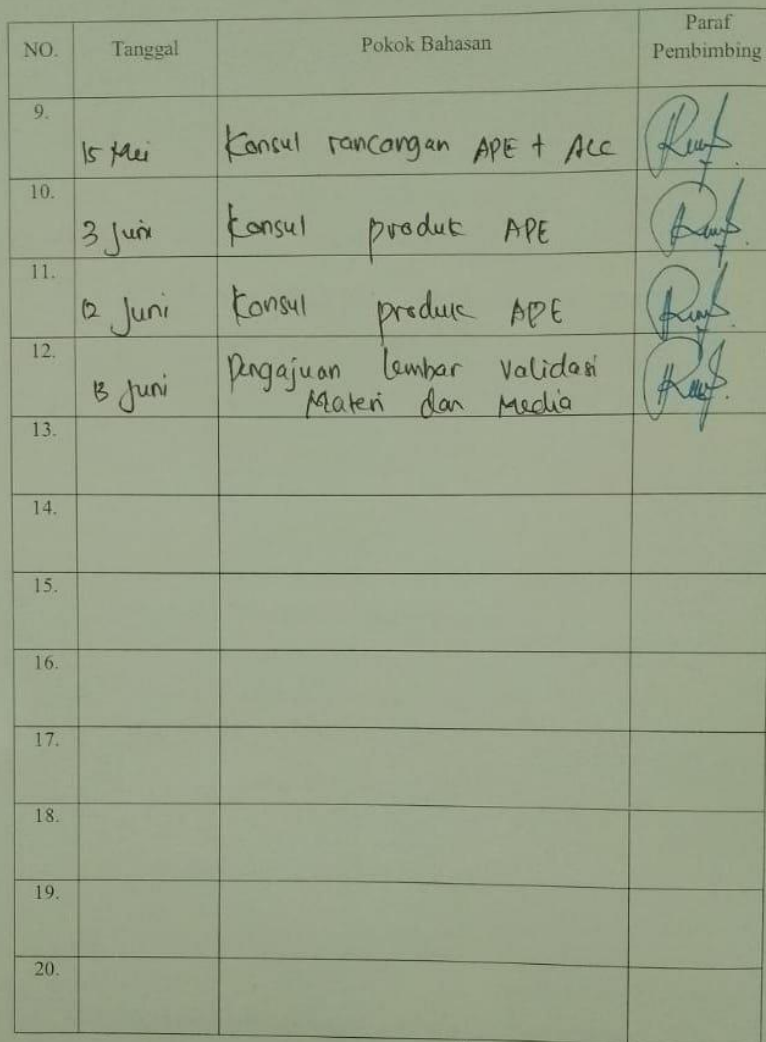 NO. Tanggal Pokok Bahasan Paraf Pembimbing
9. 15 Mei Konsul rancangan APE + ACC
10. 3 Juni Konsul produk APE
11. 12 Juni Konsul produk APE
12. 13 Juni Pengajuan lembar validasi
Materi dan Media
13.
14.
15.
16.
17.
18.
19.
20.